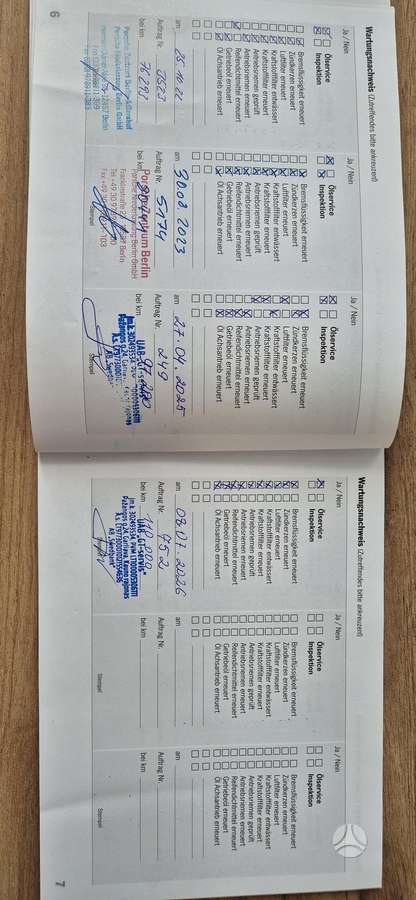 Wartungsnachweis (Zutreffendes bitte ankreuzen)
Ja / Nein
Ölservice
Inspektion
Bremsflüssigkeit erneuert
Zündkerzen erneuert
Luftfilter erneuert
Kraftstofffilter entwässert
Kraftstofffilter erneuert
Antriebsriemen geprüft
Antriebsriemen erneuert
Reifendichtmittel erneuert
Getriebeöl erneuert
Öl Achsantrieb erneuert
am 25.10.22
Auftrag Nr. 3523
bei km
6
Ja / Nein
Ölservice
Inspektion
Bremsflüssigkeit erneuert
Zündkerzen erneuert
Luftfilter erneuert
Kraftstofffilter entwässert
Kraftstofffilter erneuert
Antriebsriemen geprüft
Antriebsriemen erneuert
Reifendichtmittel erneuert
Getriebeöl erneuert
Öl Achsantrieb erneuert
am 30.08.2023
Auftrag Nr. 5174
bei km
Stempel
Ja / Nein
Ölservice
Inspektion
Bremsflüssigkeit erneuert
Zündkerzen erneuert
Luftfilter erneuert
Kraftstofffilter entwässert
Kraftstofffilter erneuert
Antriebsriemen geprüft
Antriebsriemen erneuert
Reifendichtmittel erneuert
Getriebeöl erneuert
Öl Achsantrieb erneuert
am 27.04.2025
Auftrag Nr. 249
bei km
Stempel
Wartungsnachweis (Zutreffendes bitte ankreuzen)
Ja / Nein
Ölservice
Inspektion
Bremsflüssigkeit erneuert
Zündkerzen erneuert
Luftfilter erneuert
Kraftstofffilter entwässert
Kraftstofffilter erneuert
Antriebsriemen geprüft
Antriebsriemen erneuert
Reifendichtmittel erneuert
Getriebeöl erneuert
Öl Achsantrieb erneuert
am 08.07.2026
Auftrag Nr. 752
bei km
Stempel
Ja / Nein
Ölservice
Inspektion
Bremsflüssigkeit erneuert
Zündkerzen erneuert
Luftfilter erneuert
Kraftstofffilter entwässert
Kraftstofffilter erneuert
Antriebsriemen geprüft
Antriebsriemen erneuert
Reifendichtmittel erneuert
Getriebeöl erneuert
Öl Achsantrieb erneuert
am
Auftrag Nr.
bei km
Stempel
Ja / Nein
Ölservice
Inspektion
Bremsflüssigkeit erneuert
Zündkerzen erneuert
Luftfilter erneuert
Kraftstofffilter entwässert
Kraftstofffilter erneuert
Antriebsriemen geprüft
Antriebsriemen erneuert
Reifendichtmittel erneuert
Getriebeöl erneuert
Öl Achsantrieb erneuert
am
Auftrag Nr.
bei km
Stempel
7